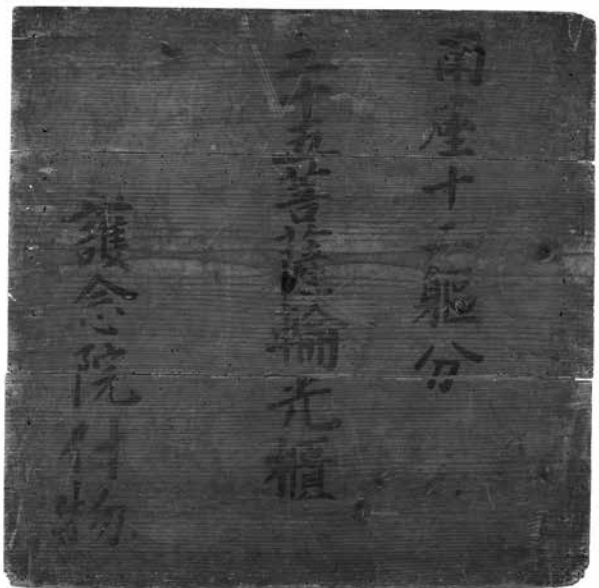 南座十二軀分
二十五菩薩輪光櫃
護念院什物